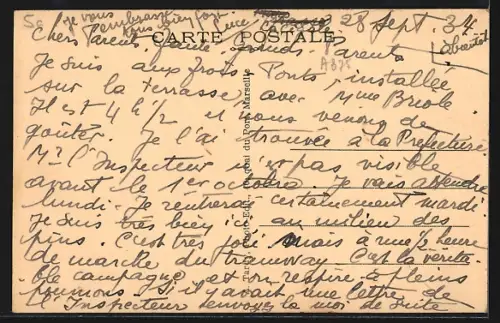 je vous
embrasse
tous bien fort
28 Sept. 34
CARTE POSTALE
Chers Parents, Tante, Grands-Parents
bientôt
A875
Je suis aux Trois Ponts, installée
sur la terrasse, avec Mme Briole
Il est 4 h 1/2 et nous venons de
goûter. Je l'ai trouvée à la Préfecture
Mr l'Inspecteur n'est pas visible
avant le 1er octobre. Je vais attendre
lundi. Je rentrerai certainement mardi.
Je suis très bien ici au milieu des
pins. C'est très joli mais à une 1/2 heure
de marche du tramway C'est la vérita-
ble campagne et on respire à pleins
poumons. Si il y avait une lettre de
Mr l'Inspecteur envoyez le moi de suite
Quai du Port, Marseille